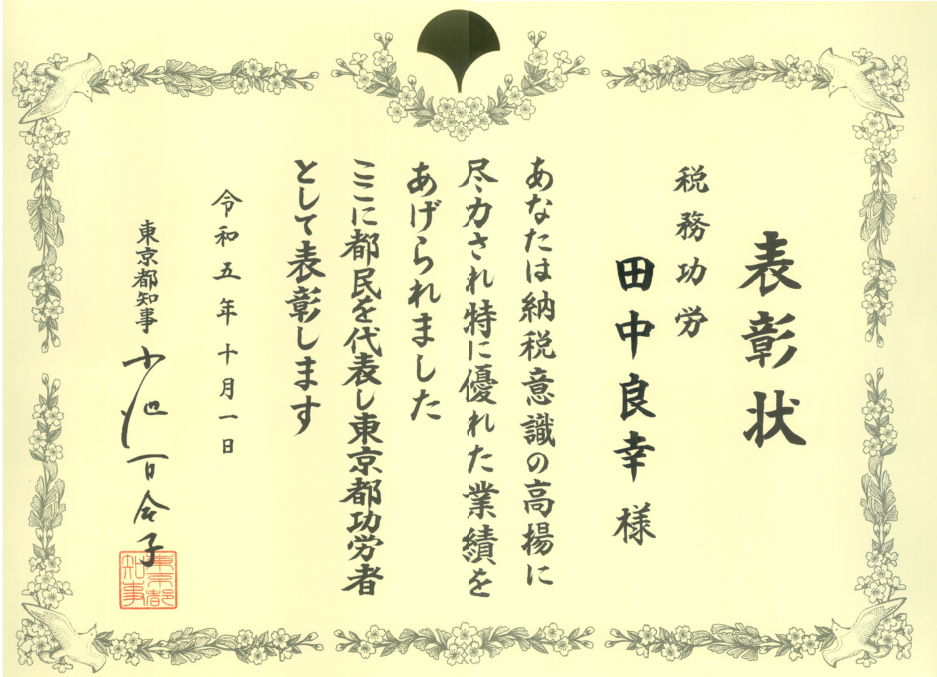 表彰状
税務功労
田中良幸様
あなたは納税意識の高揚に
尽力され特に優れた業績を
あげられました
ここに都民を代表し東京都功労者
として表彰します
令和五年十月一日
東京都知事 小池百合子
東京都知事